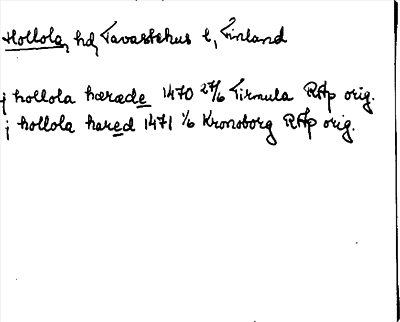 Hollola, hd, Tavastehus l, Finland
j hollola hærade 1470 27/6 Tirmula RAp orig.
j hollola hared 1471 1/6 Kronoborg RAp orig.